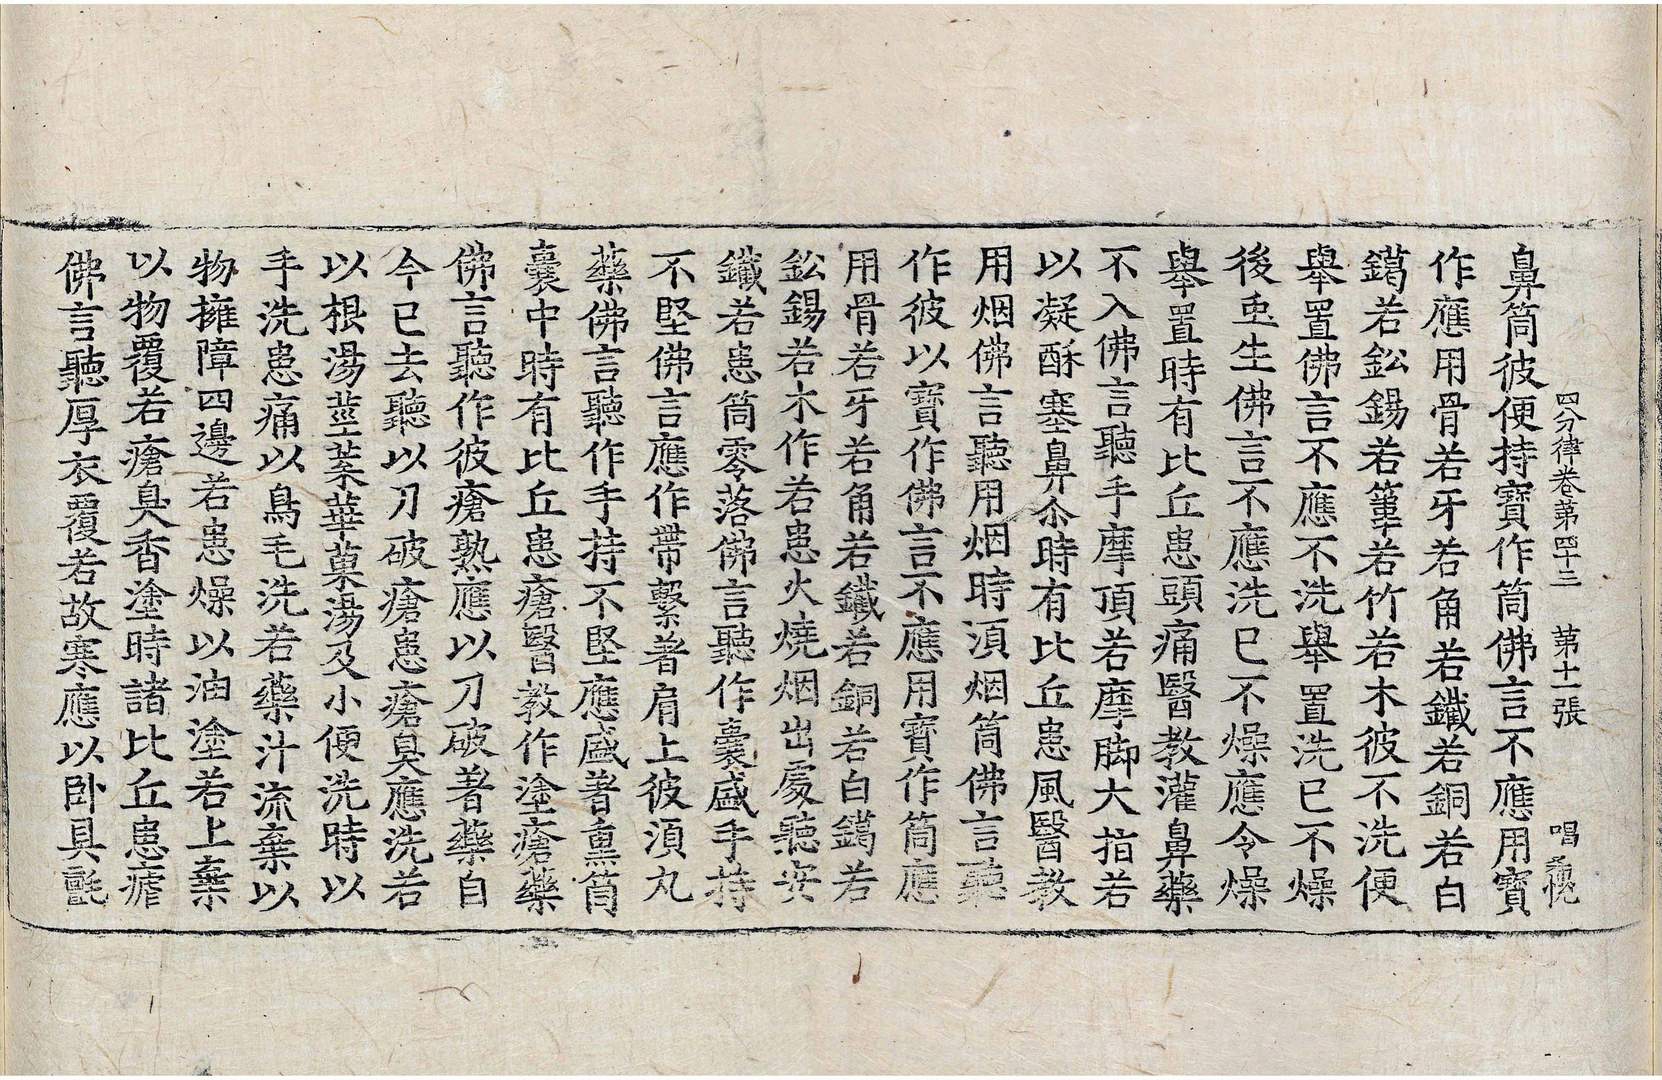 四分律卷第四十三 第十一張 唱
鼻筒彼便持寶作筒佛言不應用寶
作應用骨若牙若角若鐵若銅若白
鑞若鈆錫若葦若竹若木彼不洗便
舉置佛言不應不洗舉置洗已不燥
後虫生佛言不應洗已不燥應令燥
舉置時有比丘患頭痛醫教灌鼻藥
不入佛言聽手摩頂若摩脚大指若
以凝酥塞鼻尒時有比丘患風醫教
用烟佛言聽用烟時湏烟筒佛言聽
作彼以寶作佛言不應用寶作筒應
用骨若牙若角若鐵若銅若白鑞若
鈆錫若木作若患火燒烟出處聽安
鐵若患筒零落佛言聽作囊盛手持
不堅佛言應作帶繫著肩上彼湏丸
藥佛言聽作手持不堅應盛著熏筒
囊中時有比丘患瘡醫教作塗瘡藥
佛言聽作彼瘡熟應以刀破著藥自
今已去聽以刀破瘡患瘡臭應洗若
以根湯莖葉華菓湯及小便洗時以
手洗患痛以鳥毛洗若藥汁流棄以
物擁障四邊若患燥以油塗若上棄
以物覆若瘡臭香塗時諸比丘患瘧
佛言聽厚衣覆若故寒應以卧具氈